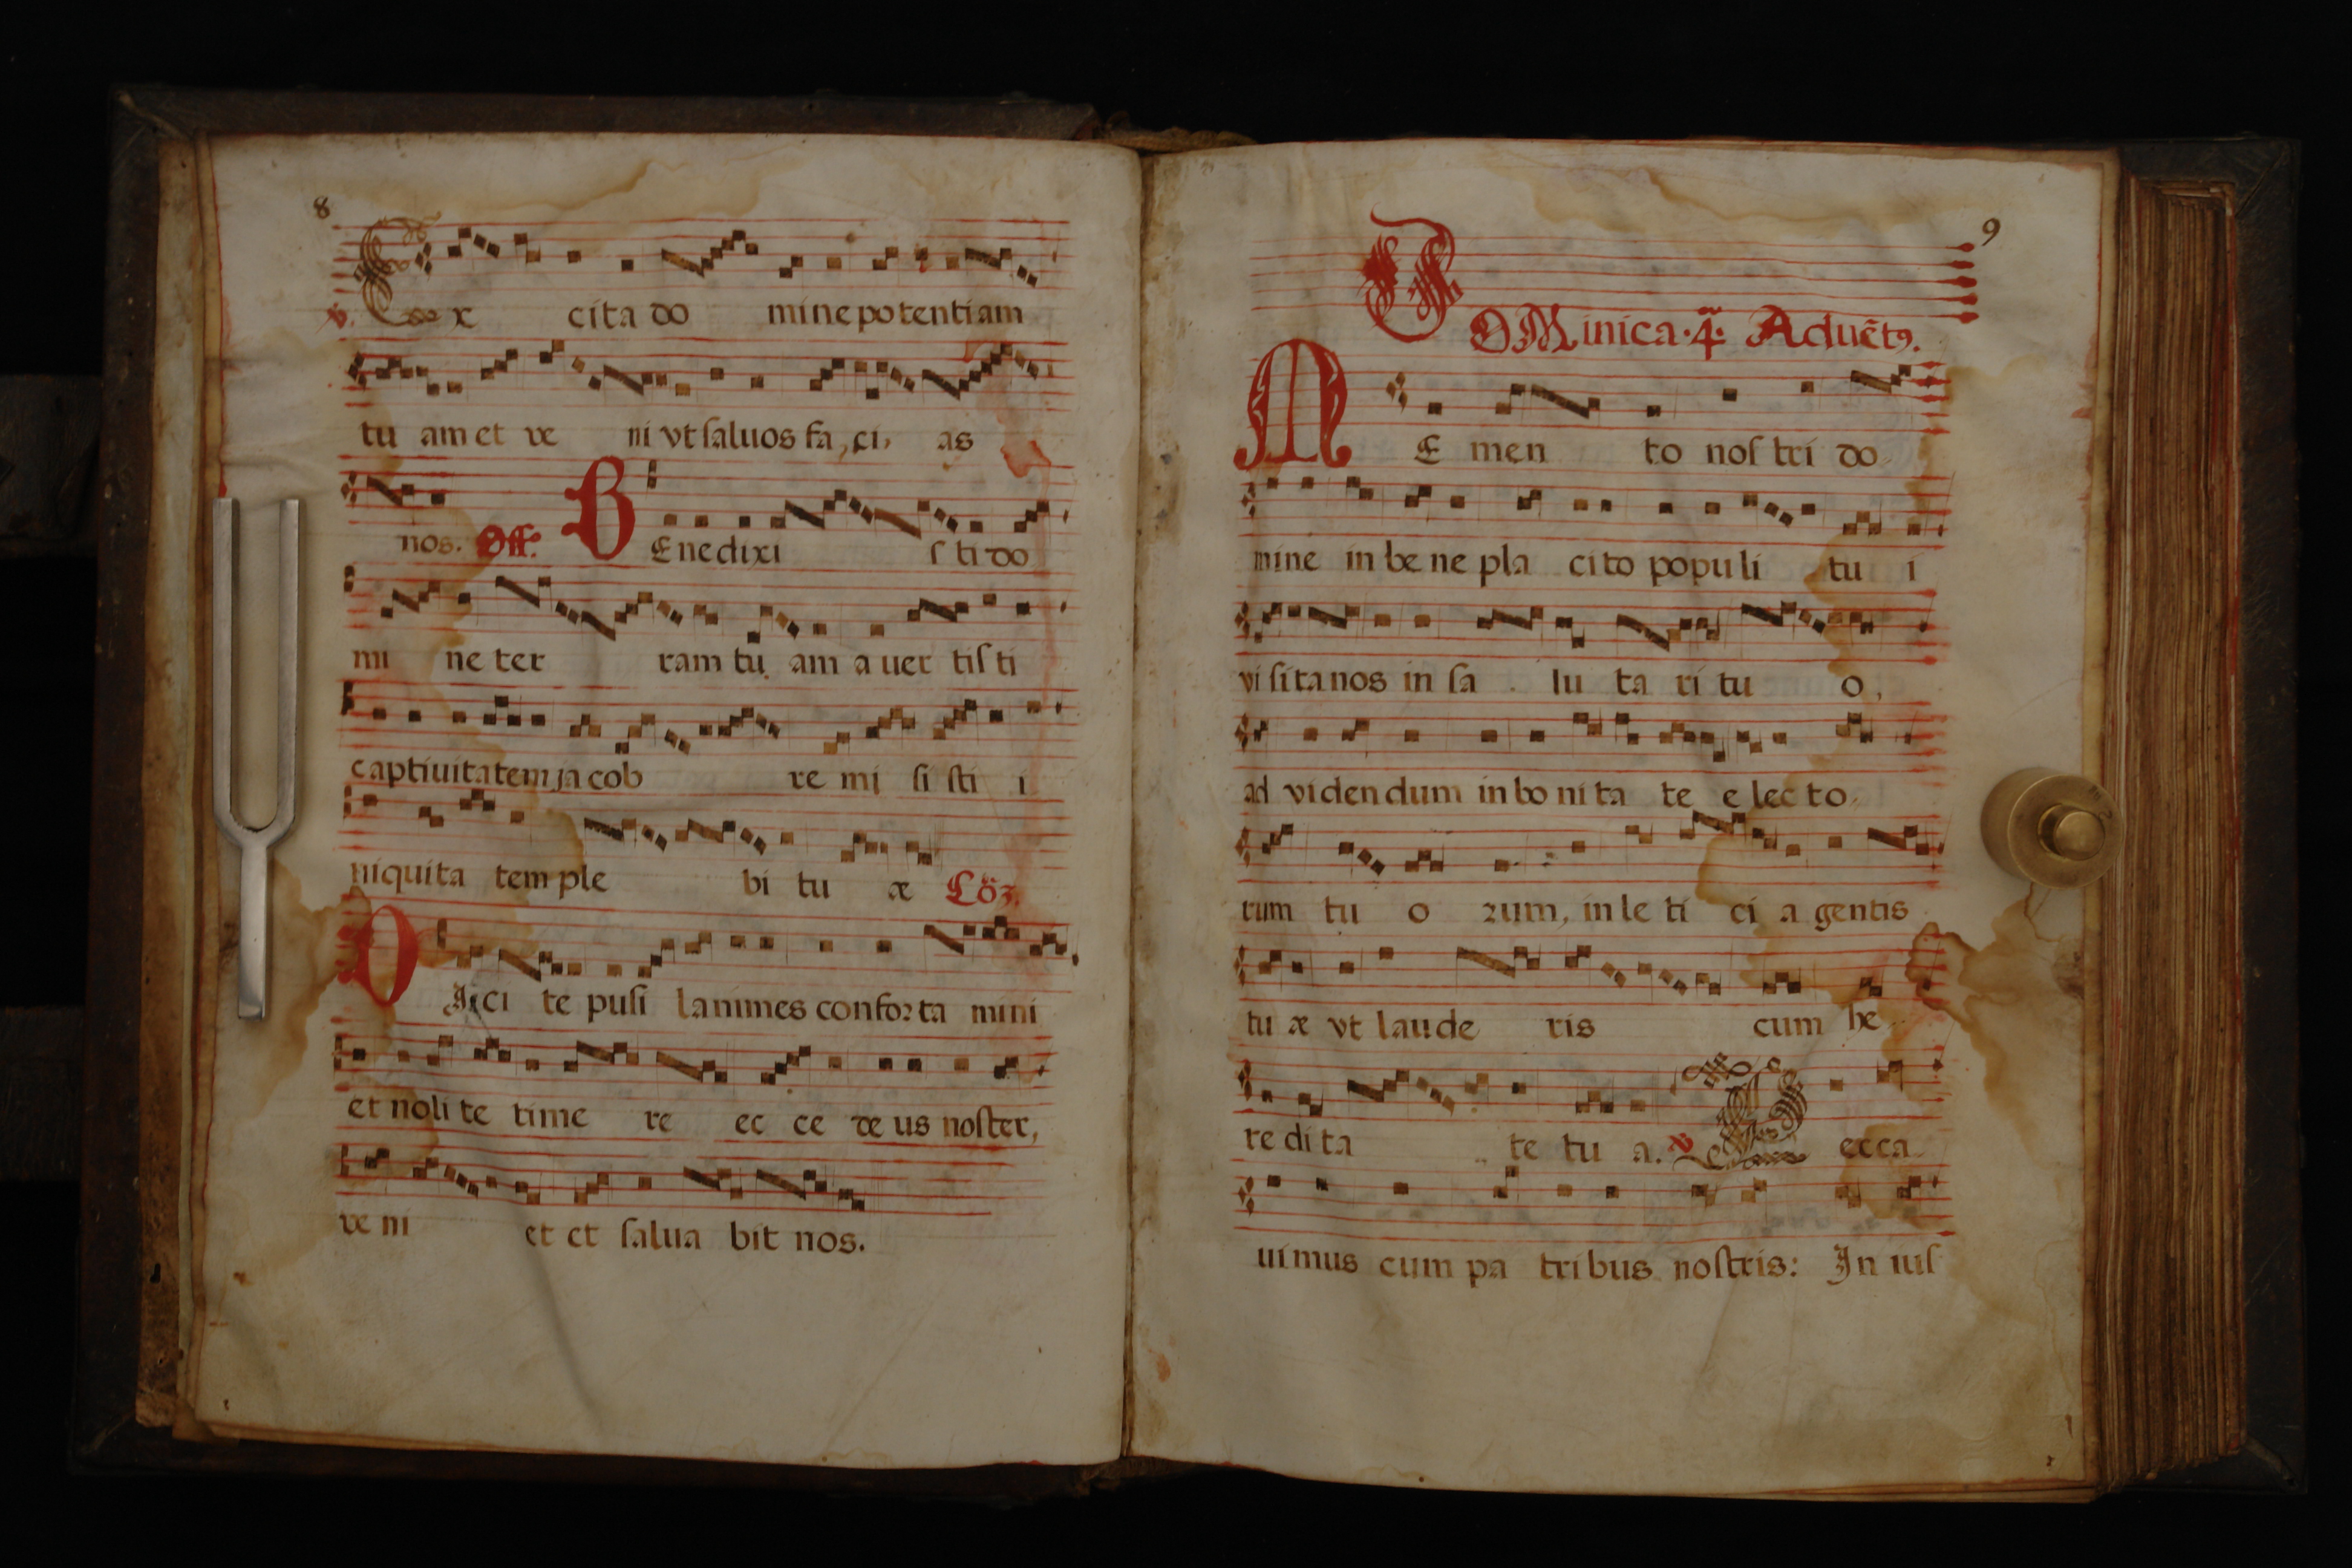 8
℣. Ex cita do mine potentiam
tu am et ve ni vt saluos fa, ci, as
nos. Off.º BEnedixi s ti do
mi ne ter ram tu am a uer tis ti
captiuitatem ja cob re mi si sti i
niquita tem ple bi tu æ Cōꝫ.
DIci te pusi lanimes conforta mini
et noli te time re ec ce de us noster,
ve ni et et salua bit nos.
9
DOMinica. 4.ª Aduēt9.
ME men to nos tri do
mine in be ne pla cito populi tu i
vi sita nos in sa lu ta ri tu o,
ad videndum in bo ni ta te e lec to
rum tu o rum, in le ti ci a gentis
tu æ vt laude ris cum he
re di ta te tu a. ℣ Pecca
uimus cum pa tribus nostris: In ius